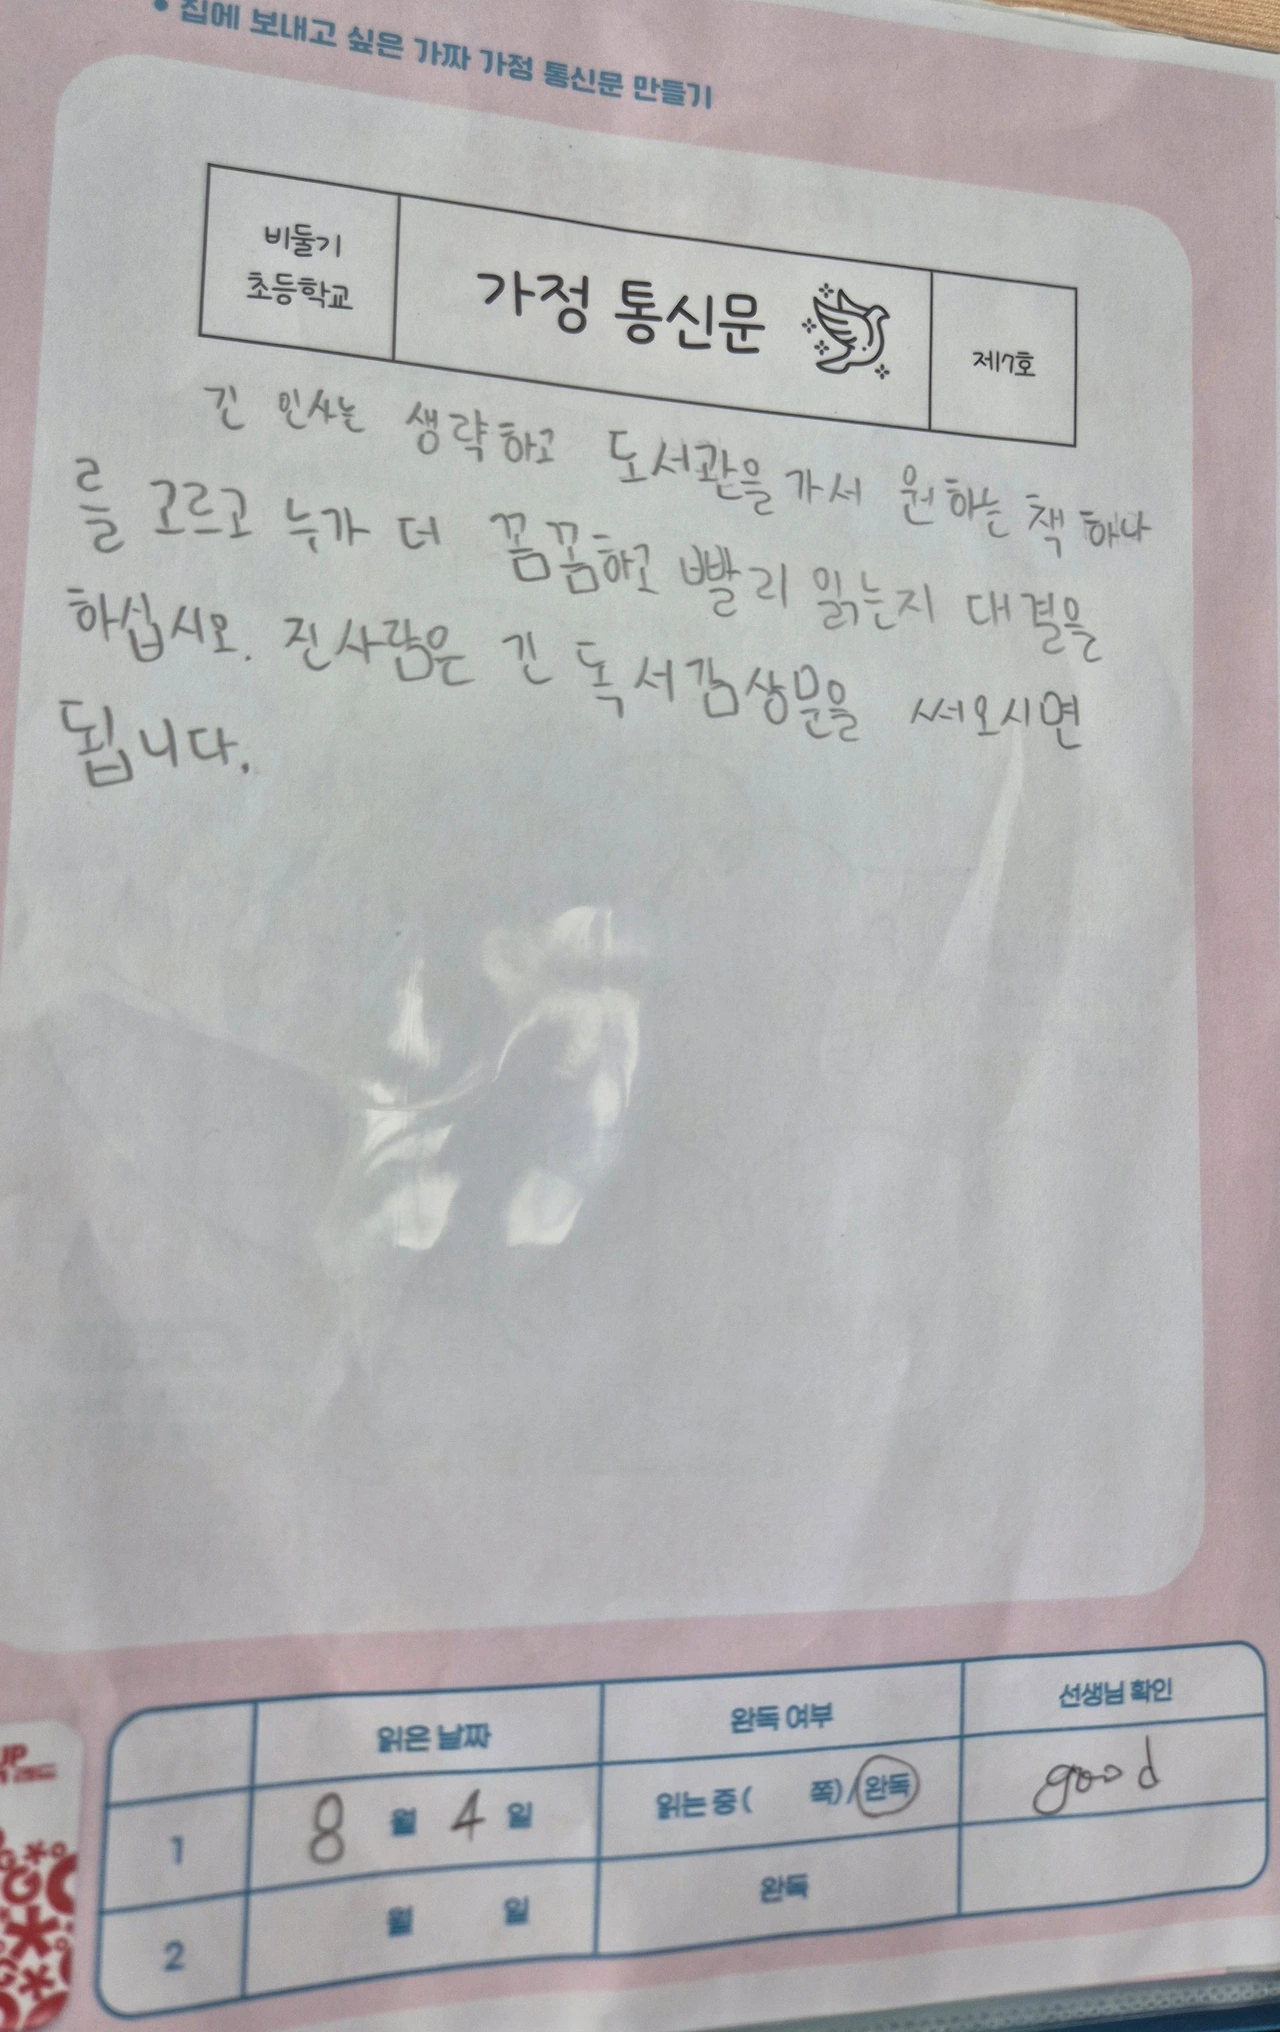 • 집에 보내고 싶은 가짜 가정 통신문 만들기
비둘기
초등학교
가정 통신문
제17호
긴 인사는 생략하고 도서관을 가서 원하는 책 하나
를 고르고 누가 더 꼼꼼하고 빨리 읽는지 대결을
하십시오. 진사람은 긴 독서감상문을 써오시면
됩니다.
읽은 날짜
완독 여부
선생님 확인
1
8 월 4 일
읽는 중 ( 쪽) / 완독
good
2
월 일
완독